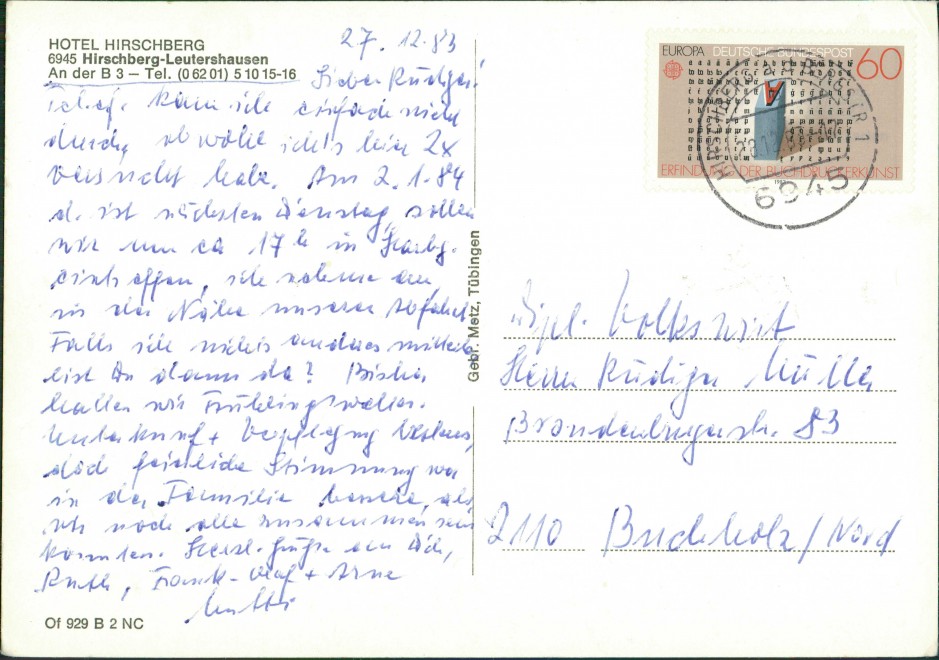 HOTEL HIRSCHBERG
6945 Hirschberg-Leutershausen
An der B 3 – Tel. (0 62 01) 5 10 15-16
27.12.83
Lieber Rüdiger!
Telef. kam ich einfach nicht
durch, obwohl ich's hier 2x
versucht habe. Am 2.1.84
d. ist nächsten Dienstag, sollen
wir um ca 17 h in Harbg.
eintreffen, ich nehme an,
in der Nähe unserer Abfahrt.
Falls ich nichts anderes mitteile
bist Du dann da? Bisher
hatten wir Frühlingswetter.
Unterkunft + Verpflegung bestens,
doch feierliche Stimmung war
in der Familie besser, als
wir noch alle zusammen sein
konnten. Herzl. Grüße an Dich,
Ruth, Frank-Olaf + Arne
Mutti
Of 929 B 2 NC
Gebr. Metz, Tübingen
EUROPA DEUTSCHE BUNDESPOST 60
ERFINDUNG DER BUCHDRUCKERKUNST
HIRSCHBERG A D BERGSTR 1
6945
Dipl. Volkswirt
Herrn Rüdiger Müller
Brandenburgerstr. 83
2110 Buchholz/Nord